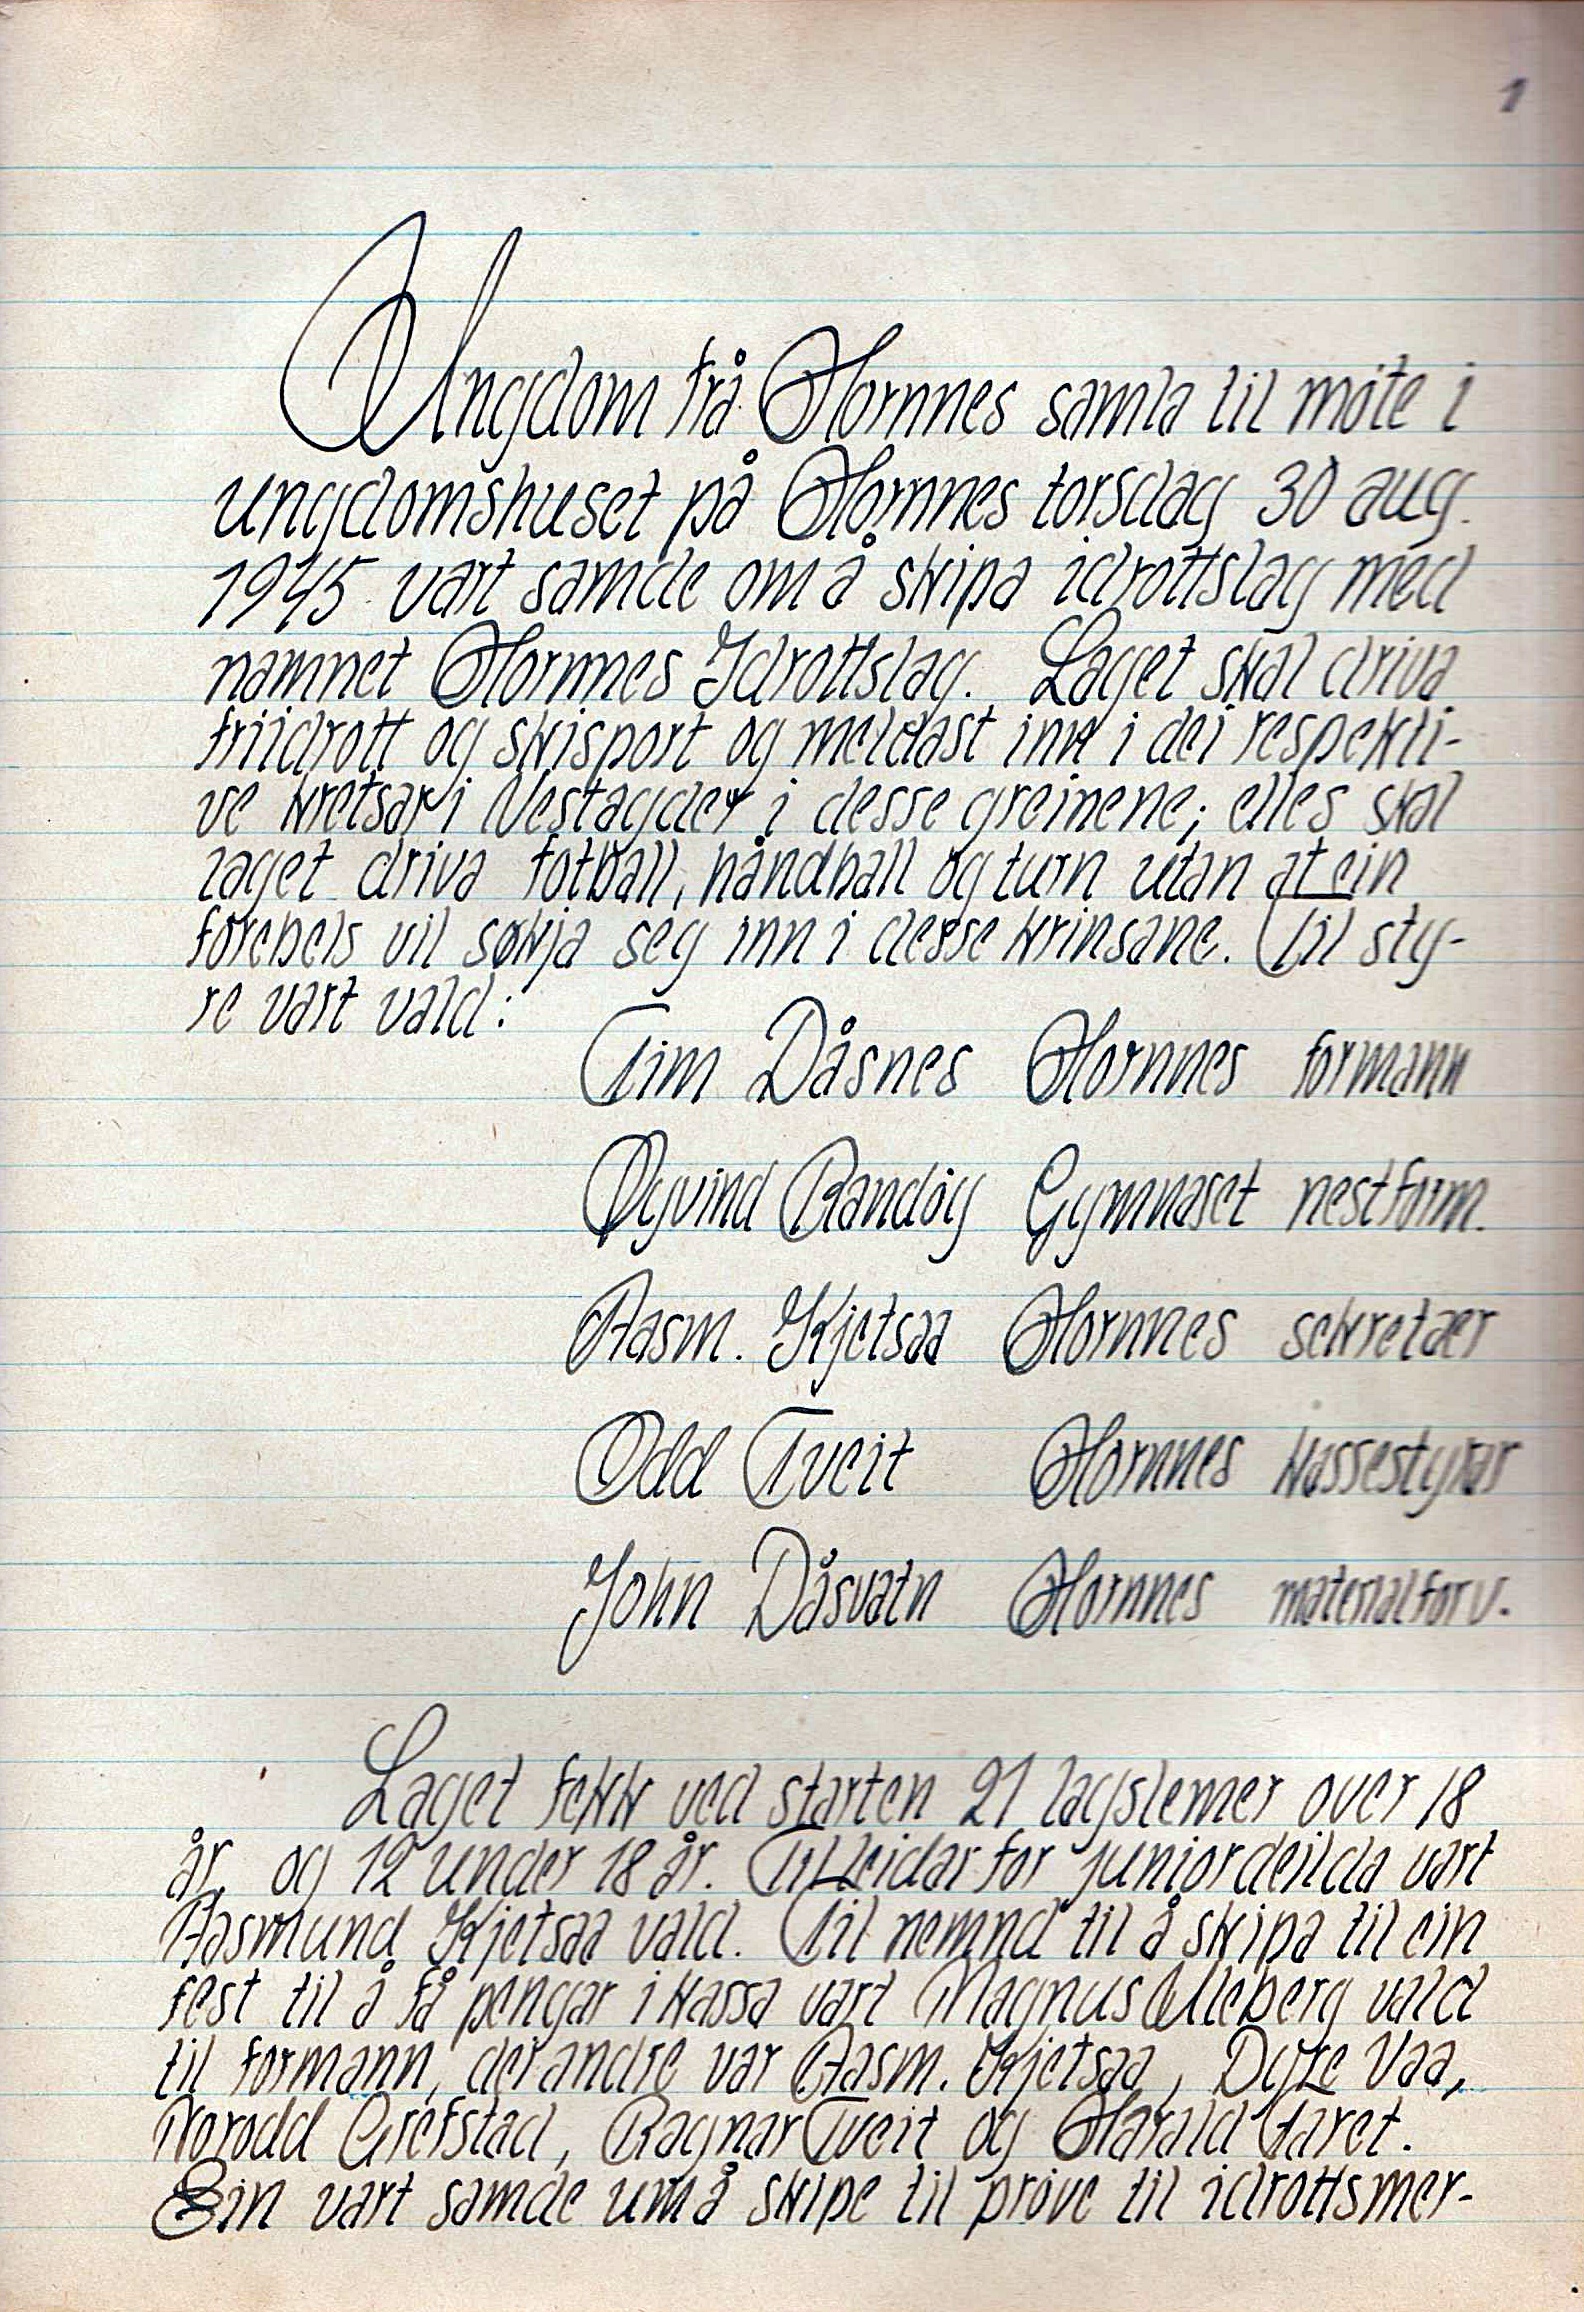 1
Ungdom frå Hornnes samla til möte i
ungdomshuset på Hornnes torsdag 30 aug.
1945 vart samde om å skipa idrottslag med
namnet Hornnes Idrottslag. Laget skal driva
friidrott og skisport og meldast inn i dei respekti-
ve kretsar i Vestagder i desse greinene; elles skal
laget driva fotball, håndball og turn utan at ein
førebels vil søkja seg inn i desse krinsane. Til sty-
re vart vald:
Tim Dåsnes Hornnes formann
Øyvind Randöy Gymnaset nestform.
Aasm. Kjetsaa Hornnes sekretær
Odd Tveit Hornnes kassestyrar
John Dåsvatn Hornnes materialforv.
Laget fekk ved starten 21 lagslemer over 18
år og 12 under 18 år. Til leidar for juniordeilda vart
Aasmund Kjetsaa vald. Til nemnd til å skipa til ein
fest til å få pengar i kassa vart Magnus Ulleberg vald
til formann, dei andre var Aasm. Kjetsaa, Dyre Vaa,
Norodd Grefstad, Ragnar Tveit og Harald Faret.
Ein vart samde um å skipe til pröve til idrottsmer-